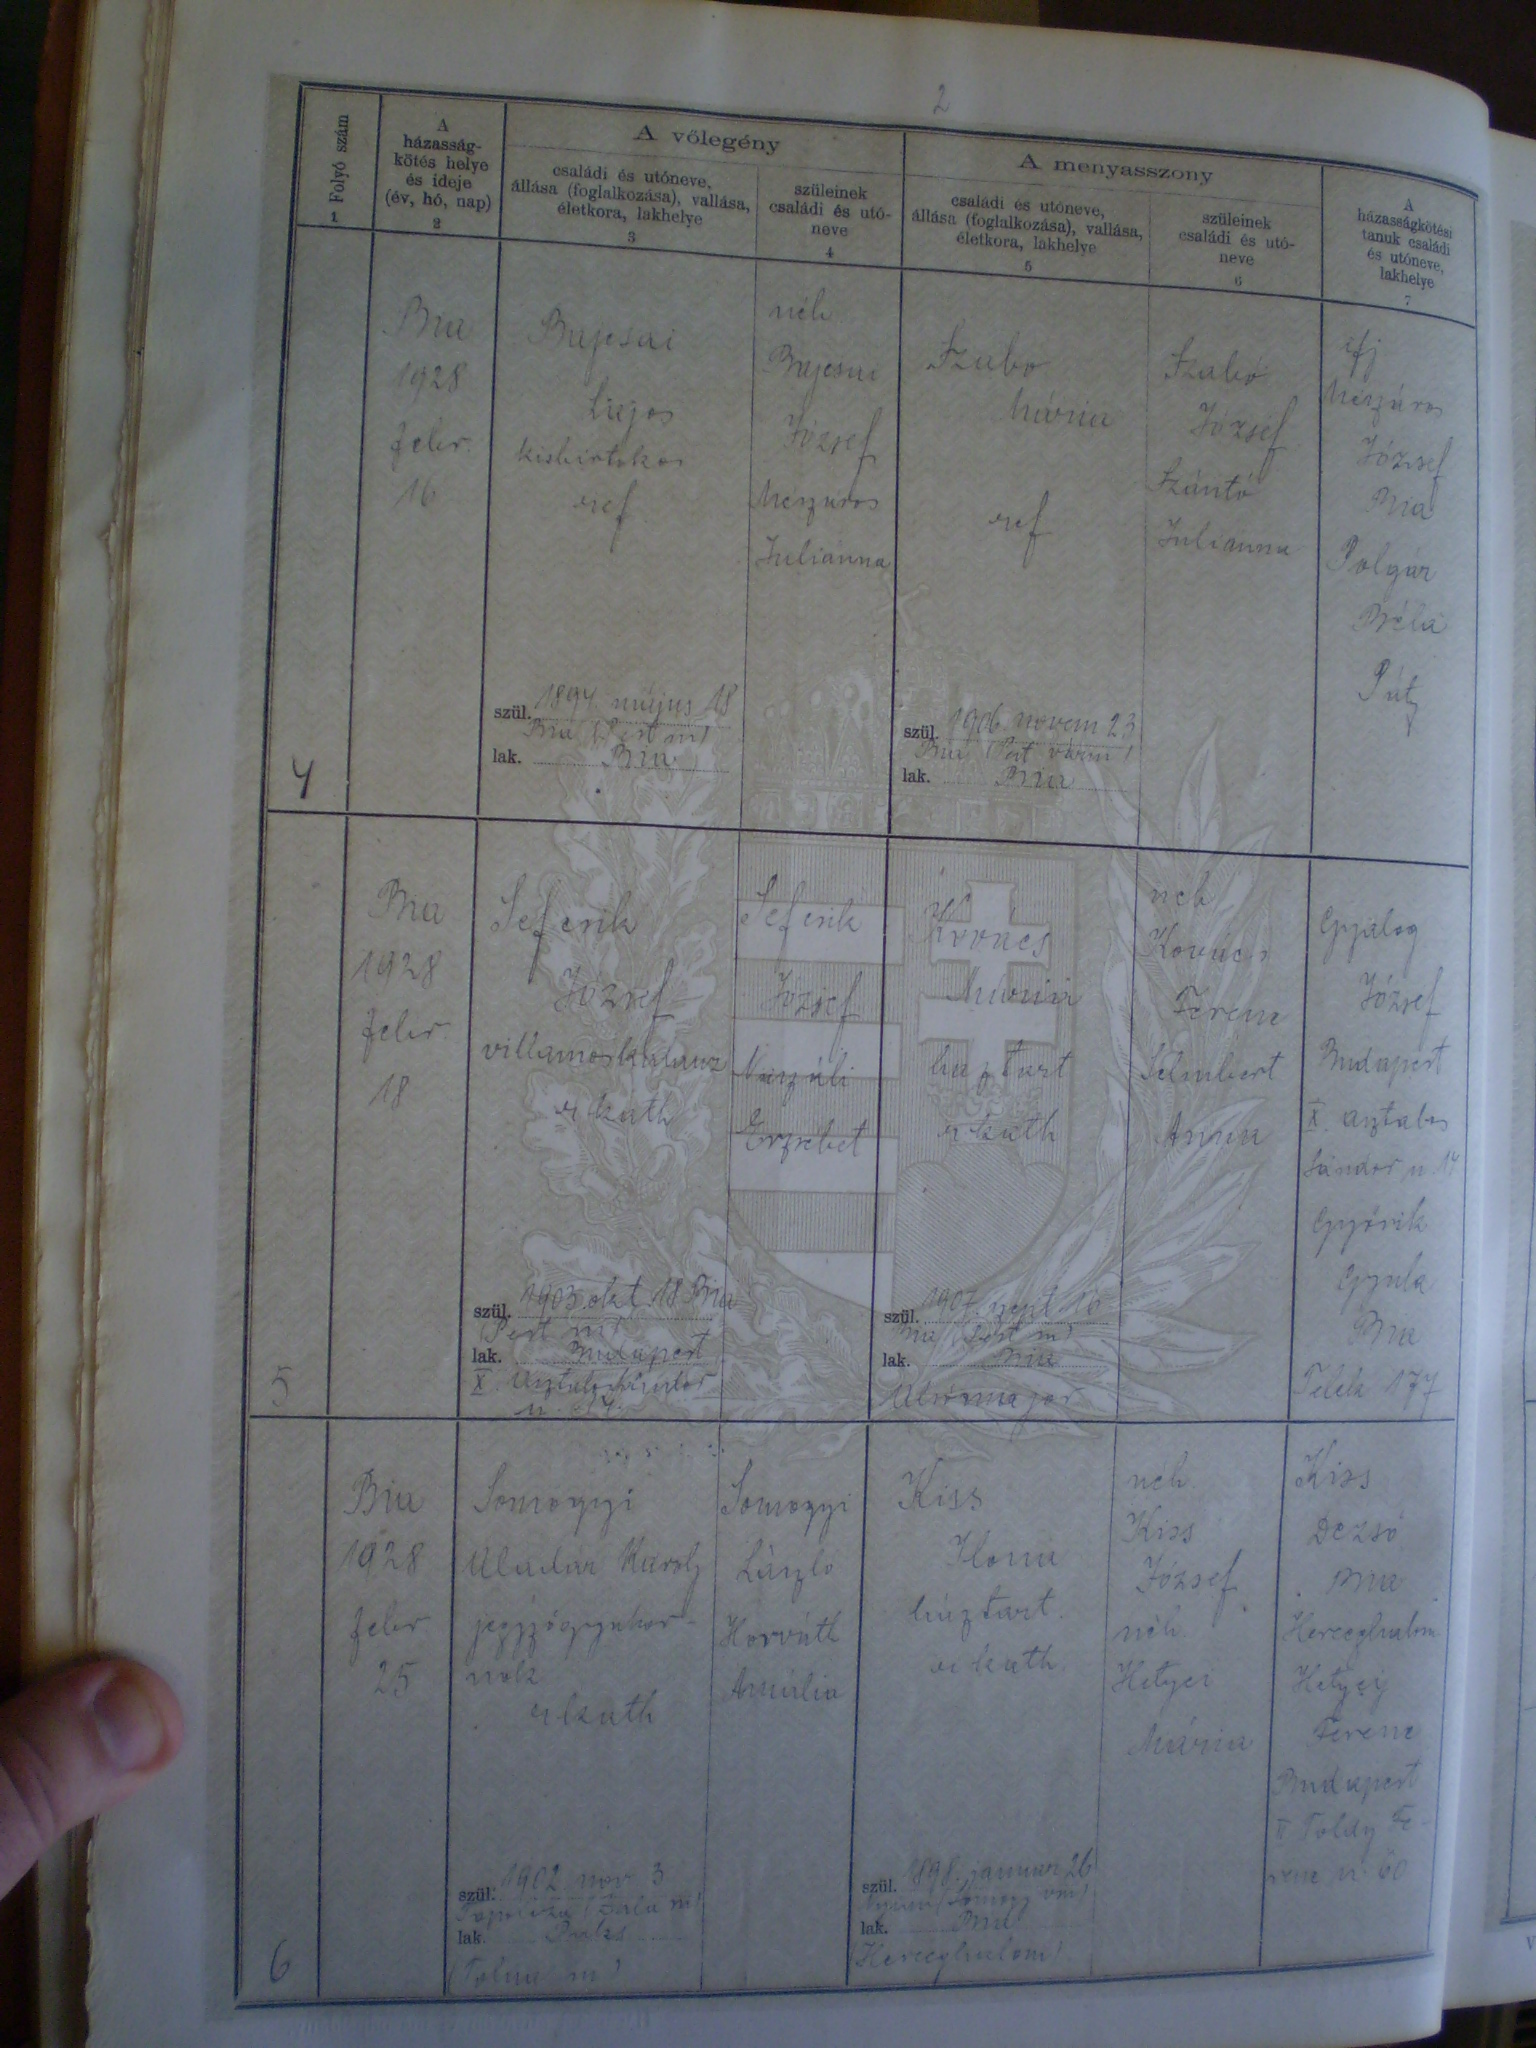 2
Folyó szám
1
A
házasság-
kötés helye
és ideje
(év, hó, nap)
2
A vőlegény
családi és utóneve,
állása (foglalkozása), vallása,
életkora, lakhelye
3
szüleinek
családi és utó-
neve
4
A menyasszony
családi és utóneve,
állása (foglalkozása), vallása,
életkora, lakhelye
5
szüleinek
családi és utó-
neve
6
A
házasságkötési
tanuk családi
és utóneve,
lakhelye
7
4
Bia
1928
febr.
16
Bajcsai
Lajos
kisbirtokos
ref
szül. 1894. május 18
Bia (Pest m)
lak. Bia
néh
Bajcsai
József
Mészáros
Juliánna
Szabo
Mária
ref
szül. 1906. novem 23
Bia (Pest várm)
lak. Bia
Szabó
József
Szántó
Julianna
ifj
Mészáros
József
Bia
Polgár
Béla
Páty
5
Bia
1928
febr.
18
Seferik
József
villamoskalauz
r kath
szül. 1903. okt. 18 Bia
(Pest m)
lak. Budapest
X. Asztalos Sándor
u. 17.
Seferik
József
Erzsebet
Kovács
Mária
háztart
r kath
szül. 1907. szept 16
Bia (Pest m)
lak. Bia
neh
Kovács
Ferenc
Schubert
Anna
Gyalog
József
Budapest
X. asztalos
Sándor u. 17
Győrik
Gyula
Bia
Telek 177
6
Bia
1928
febr
25
Somogyi
Aladár Károly
jegyzőgyakor-
nok
r kath
szül. 1902. nov 3
Tapolcza (Zala m)
lak. Paks
(Tolna m)
Somogyi
László
Horváth
Amália
Kiss
Ilona
háztart.
r kath.
szül. 1898. januar 26
(Somogy vm)
lak. Bia
(Herceghalom)
néh.
Kiss
József
néh.
Hetyei
Mária
Kiss
Dezső
Bia
Herceghalom
Hetyey
Ferenc
Budapest
II Toldy Fe-
renc u. 60